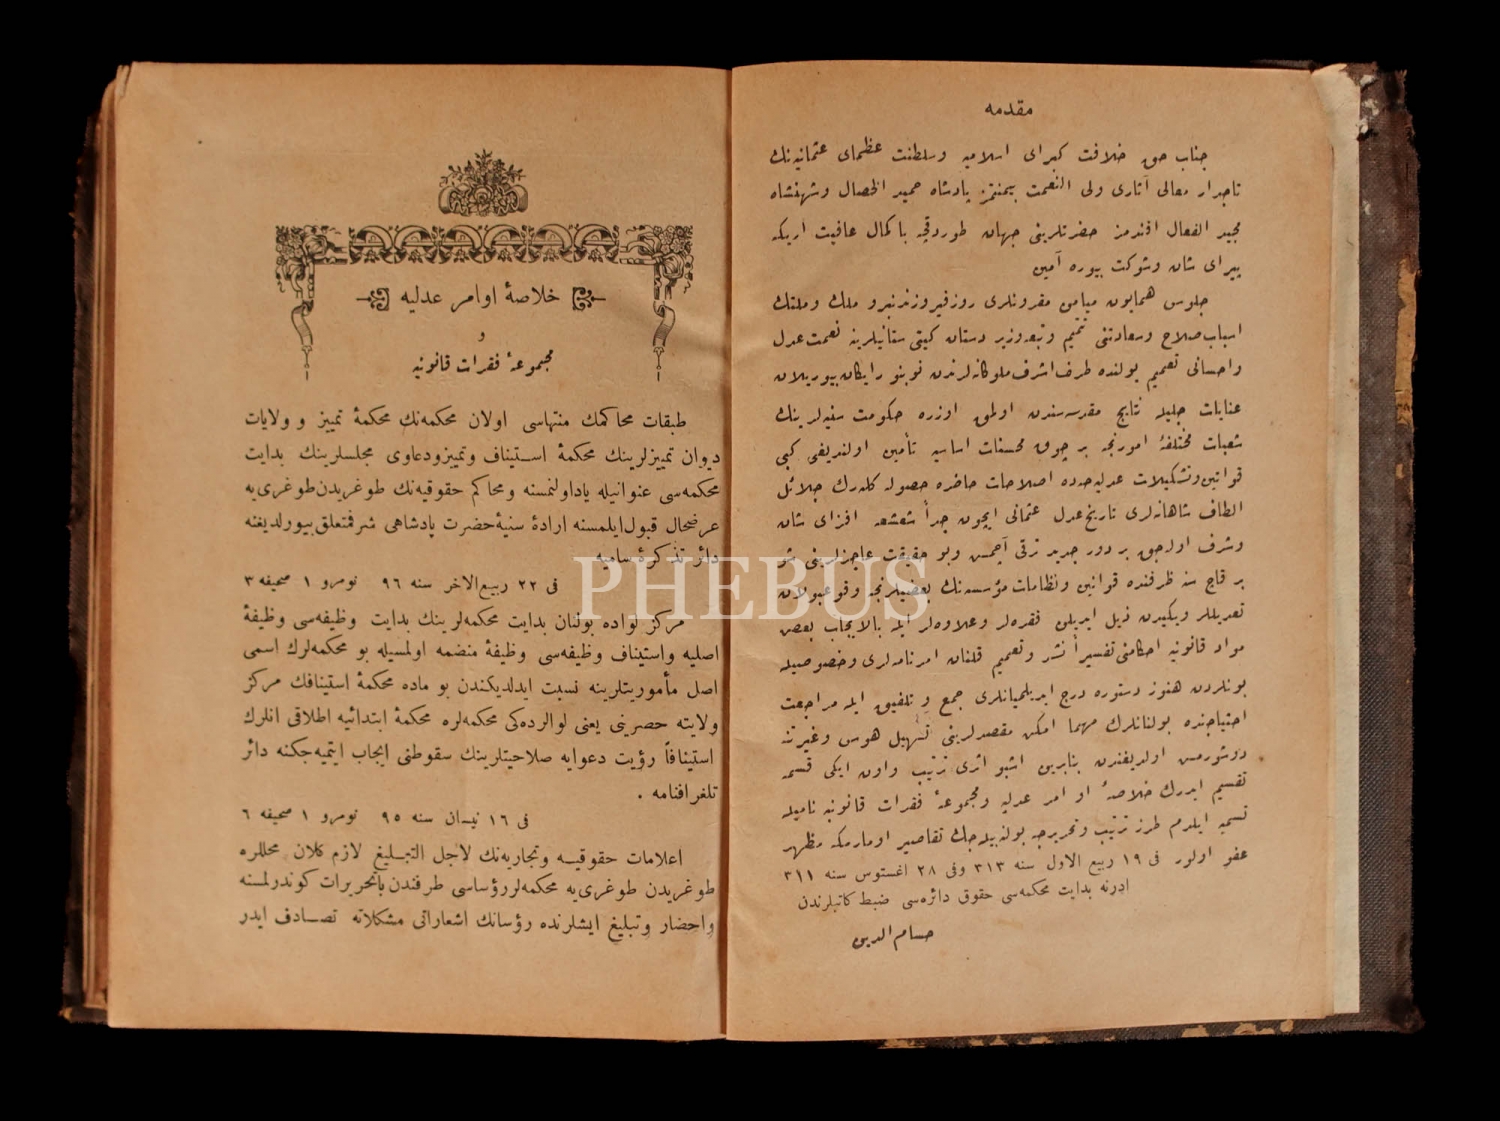 مقدمه
جناب حق خلافت كبراى اسلاميه وسلطنت عظماى عثمانيه‌نك
تاجدار معالى آثارى ولى النعمت بيمنتمز پادشاه حميد الخصال وشهنشاه
مجيد الفعال افندمز حضرتلرينى جهان طوردقجه با كمال عافيت اريكه
پيراى شان وشوكت بيوره آمين
جلوس همايون ميامن مقرونلرى روزفيروزندنبرو ملك وملتك
اسباب صلاح وسعادتنى تتميم وتبعه وزير دستان كيتى ستانيلرينه نعمت عدل
واحسانى تعميم يولنده طرف اشرف ملوكانه‌لرندن نوبنو رايكان بيوريلان
عنايات جليله نتايج مقدسه‌سندن اولمق اوزره حكومت سنيه‌لرينك
شعبات مختلفهٔ امورنجه بر چوق محسنات اساسيه تأمين اولنديغى كبى
قوانين وتشكيلات عدليه‌جه‌ده اصلاحات حاضره حصوله كله‌رك جلائل
الطاف شاهانه‌لرى تاريخ عدل عثمانى ايچون جداً شعشعه افزاى شان
وشرف اوله‌جق بر دور جديد ترقى آچمش وبو حقيقت عاجزلرينى شو
بر قاچ سنه ظرفنده قوانين ونظامات مؤسسه‌نك بعضيلرنجه وقوعبولان
تعديللر ويكيدن ذيل ايديلن فقره‌لر وعلاوه‌لر ايله بالايجاب بعض
مواد قانونيه احكامنى تفسيراً نشر وتعميم قلنان امرنامه‌لرى وخصوصيله
بونلردن هنوز دستوره درج ايديلميانلرى جمع و تلفيق ايله مراجعت
احتياجنده بولنانلرك مهما امكن مقصدلرينى تسهيل هوس وغيرتنه
دوشورمش اولديغندن بنابرين اشبو اثرى ترتيب واون ايكى قسمه
تقسيم ايدرك خلاصهٔ او امر عدليه ومجموعهٔ فقرات قانونيه ناميله
تسميه ايلدم طرز ترتيب وتحريرجه بولنبيله‌جك تقاصير اومارمكه مظهر
عفو اولور فى ١٩ ربيع الاول سنه ٣١٣ وفى ٢٨ اغستوس سنه ٣١١
ادرنه بدايت محكمه‌سى حقوق دائره‌سى ضبط كاتبلرندن
حسام الدين
خلاصهٔ اوامر عدليه
و
مجموعهٔ فقرات قانونيه
طبقات محاكمك منتهاسى اولان محكمه‌نك محكمهٔ تمييز و ولايات
ديوان تمييزلرينك محكمهٔ استيناف وتمييزودعاوى مجلسلرينك بدايت
محكمه‌سى عنوانيله ياداولنمسنه ومحاكم حقوقيه‌نك طوغريدن‌طوغرى‌يه
عرضحال قبول‌ايلمسنه ارادهٔ سنيهٔ‌حضرت پادشاهى شرفتعلق‌بيورلديغنه
دائر تذكرهٔ ساميه
فى ٢٢ ربيع الاخر سنه ٩٦ نومرو ١ صحيفه ٣
مركز لواده بولنان بدايت محكمه‌لرينك بدايت وظيفه‌سى وظيفهٔ
اصليه واستيناف وظيفه‌سى وظيفهٔ منضمه اولمسيله بو محكمه‌لرك اسمى
اصل مأموريتلرينه نسبت ايدلديكندن بو ماده محكمهٔ استينافك مركز
ولايته حصرينى يعنى لوالرده‌كى محكمه‌لره محكمهٔ ابتدائيه اطلاقى انلرك
استينافاً رؤيت دعوايه صلاحيتلرينك سقوطنى ايجاب ايتميه‌جكنه دائر
تلغرافنامه .
فى ١٦ نيسان سنه ٩٥ نومرو ١ صحيفه ٦
اعلامات حقوقيه وتجاريه‌نك لاجل التبليغ لازم كلان محللره
طوغريدن طوغرى‌يه محكمه‌لررؤساسى طرفندن‌باتحريرات كوندرلمسنه
واحضار وتبليغ ايشلرنده رؤسانك اشعاراتى مشكلاته تصادف ايدر
PHEBUS